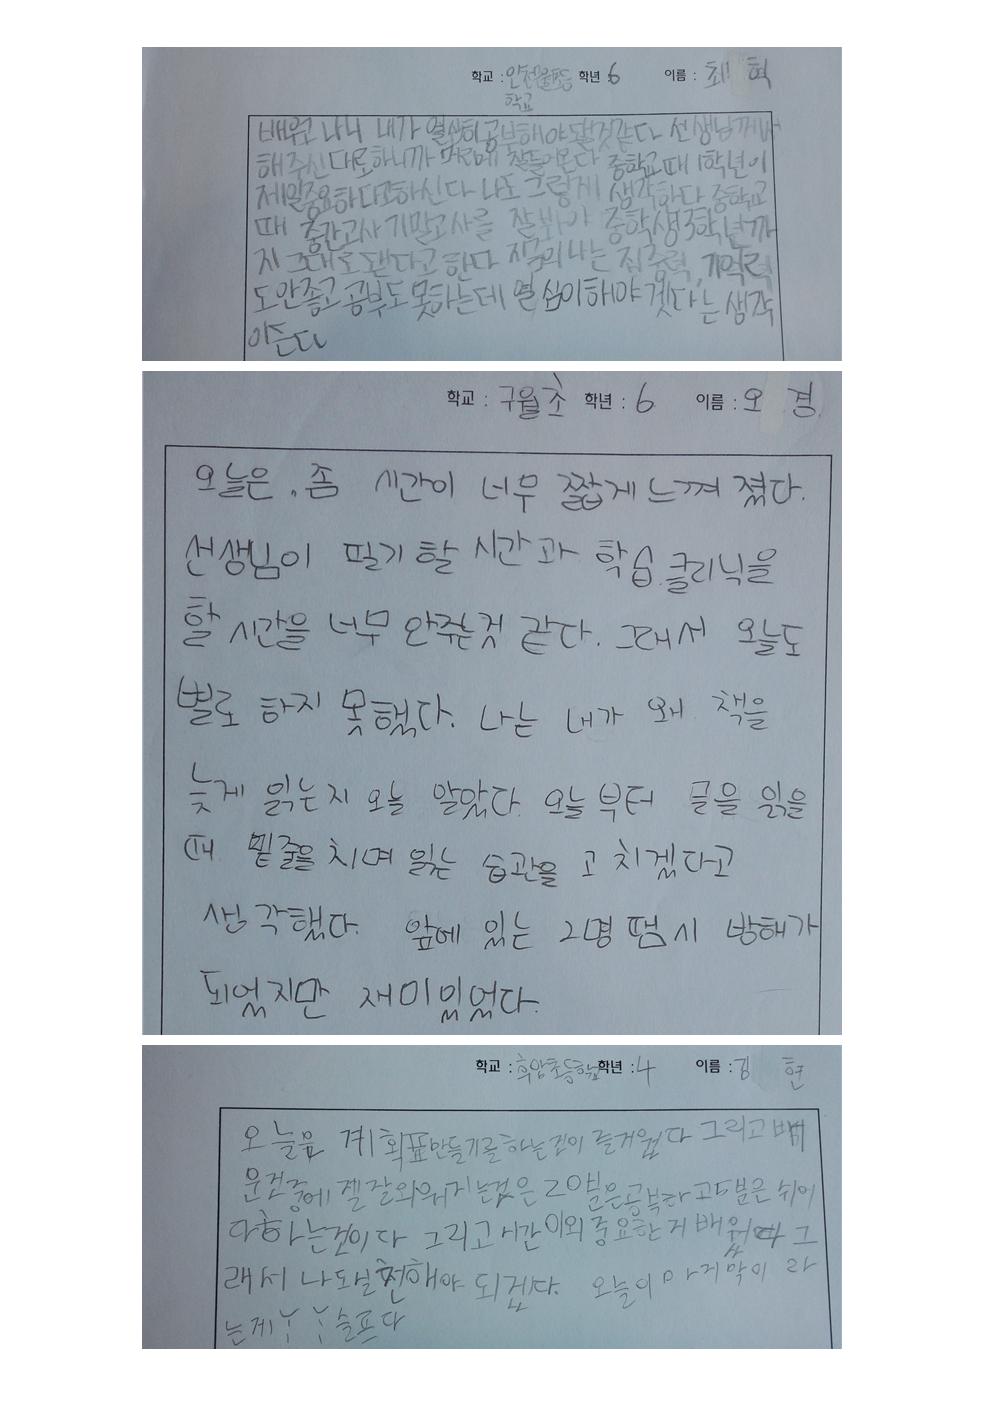 학교 : 학년 6 이름 : 최 혁
학교
배워 나니 내가 열심히 공부해야 될것같다 선생님께서
해주신대로하니까 머리에 잘들어온다 중학교때 1학년이
제일중요하다고하신다 나도 그렇게 생각하다 중학교
때 중간고사 기말고사를 잘봐야 중학생3학년까
지 그대로 됀다고 한다 지금의 나는 집중력, 기억력
도안좋고 공부도 못하는데 열심이해야 겠다는 생각
이든다
학교 : 구월초 학년 : 6 이름 : 오 경
오늘은 . 좀 시간이 너무 짧게 느껴 졌다.
선생님이 필기 할 시간과 학습.클리닉을
할 시간을 너무 안주는것 같다. 그래서 오늘도
별로 하지 못했다. 나는 내가 왜 책을
늦게 읽는지 오늘 알았다. 오늘 부터 글을 읽을
때 밑줄을 치며 읽는 습관을 고 치겠다고
생각했다. 앞에 있는 2명 땜시 방해가
되었지만 재미있었다.
학교 : 후암초등학교 학년 : 4 이름 : 김 현
오늘음 계획표만들기를하는것이 즐거웠다 그리고 배
운것중에 젤 잘외워지는것은 20분은공부하고5분은 쉬어
다하는것이다 그리고 시간이외 중요한거 배웠다 그
래서 나도 실천해야 되겠다. 오늘이 마지막이 라
는게ㅠㅠ슬프다